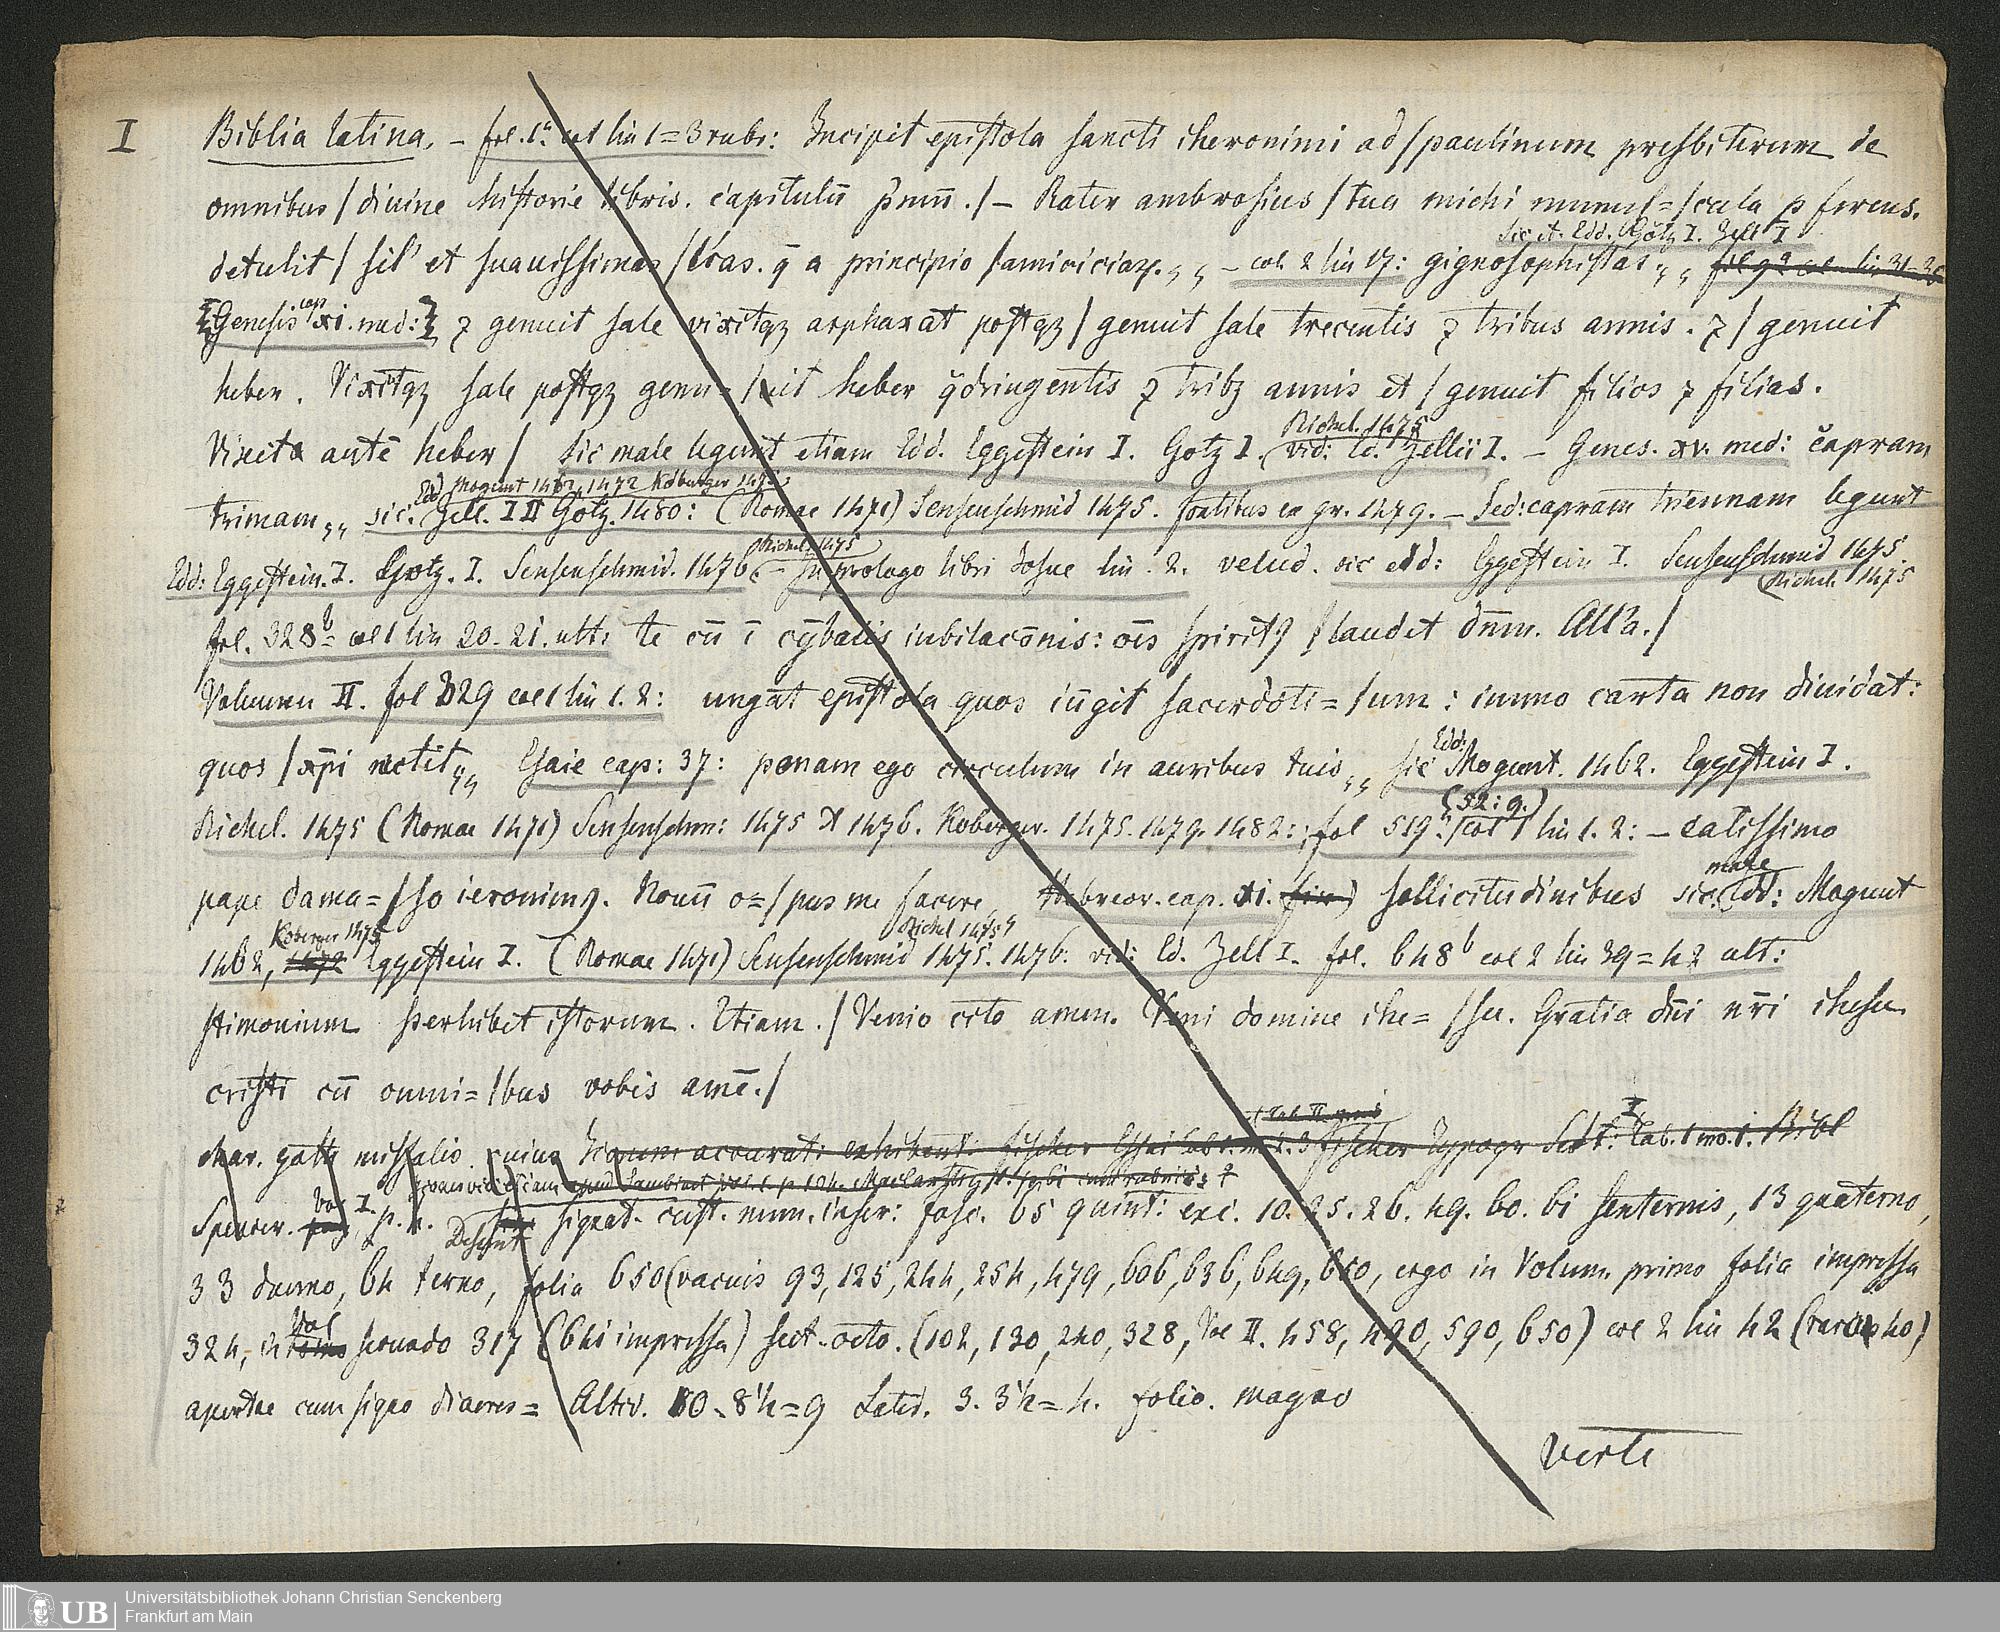 I Biblia latina. – fol. 1ª col 1 lin 1=3 rubr: Incipit epistola sancti iheronimi ad / paulinum presbiterum de
omnibus / diuine historie libris. capitulū p̄mū. / – Rater ambrosius / tua michi munus= / cula p ferens.
sic et. Edd. Götz I. Zell I
detulit / sil' et suauissimas / lras. q̄ a principio / amiciciaꝝ. „ – col. 2 lin 17: gignosophistas „
Genesis cap xi. med: ⁊ genuit sale vixitqꝫ arphaxat postqꝫ / genuit sale trecentis ⁊ tribus annis. ⁊ / genuit
heber. Vixitqꝫ sale postqꝫ genu= / it heber q̄dringentis ⁊ tribꝫ annis et / genuit filios ⁊ filias.
Richel. 1475
Vixit autē heber / sic male legunt etiam Edd. Eggestein I. Götz I. (vid: Ed. Zellii I. – Genes. xv. med: capram
Edd Mogunt 1462, 1472 Koburger 1475
trimam „ sic. Zell. I II Götz. 1480: (Romae 1471) Sensenschmid 1475. fontibus ex gr. 1479. – Sed: capram triennam legunt
Richel. 1475
Edd: Eggestein. I. Götz. I. Sensenschmid. 1476 – In prologo libri Josue lin. 2. velud. sic edd: Eggestein I. Sensenschmid 1475.
Richel. 1475
fol. 328b col 1 lin 20. 21. ult: te cū ī cȳbalis iubilacōnis: oīs spiritꝯ / laudet dnm. All'a. /
Volumen II. fol 329 col 1 lin 1. 2: ungat epistola quos iūgit sacerdoti= / um: immo carta non diuidat:
Edd:
quos / xp̄i nectit „ Esaie cap: 37: ponam ego circulum in auribus tuis „ sic Mogunt. 1462. Eggestein I.
(52: 9.)
Richel. 1475 (Romae 1471) Sensenschm: 1475 1476. Koberger. 1475. 1479. 1482:; fol 519. col 1 lin 1. 2: – eatissimo
male
pape dama= / so ieronimꝯ. Nouū o= / pus me facere Hebreor. cap. xi. sollicitudinibus sic. Edd: Mogunt
Koberger 1475 Richel 1475
1462, 1472 Eggestein I. (Romae 1471) Sensenschmid 1475. 1476. vid: Ed. Zell I. fol. 648b col 2 lin 39=42 ult:
stimonium perhibet istorum. Etiam. / Venio cito amen. Veni domine ihe= / su. Gratia dn̄i nr̄i ihesu
cristi cū omni= / bus vobis amē. /
char. goth missalio. cuius accurati exhibent: Fischer Essai Fischer Typogr Selt: I Tab. 1 no. 1. Bibl
Spencer. Vol I. p. Desunt signat. cust. num. inser: fasc. 65 quint: exc. 10. 25. 26. 49. 60. 61 senternis, 13 quaterno,
33 duerno, 64 terno, folia 650 (vacuis 93, 125, 244, 254, 479, 606, 636, 649, 650, ergo in Volum. primo folia impressa
324, in Vol secundo 317 (641 impressa) sect. octo. (102, 130, 240, 328, Vol II. 458, 490, 590, 650) col 2 lin 42 (raro 40)
apertae cum signo diaeres= Altid. 10. 8'4=9 Latid. 3. 3'4=4. folio. magno
Verte
Universitätsbibliothek Johann Christian Senckenberg
UB Frankfurt am Main